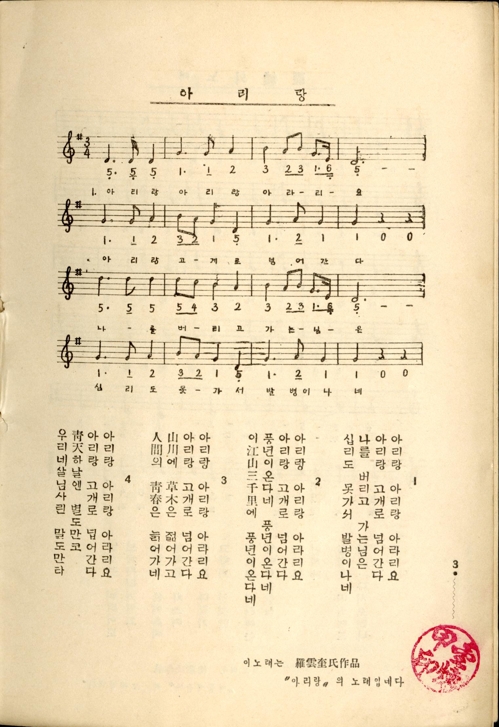 아 리 랑
3/4
5· 5 5 1· 1 2 3 2 3 1· 6 5 - -
1. 아 리 랑 아 리 랑 아 라 - 리 - 요
1· 1 2 3 2 1 5 1· 2 1 1 0 0
· 아 리 랑 고 - 개 로 넘 어 간 다
5· 5 5 5 4 3 2 3 2 3 1· 6 5 - -
나 - 를 버 - 리 고 가 는 - 님 - 은
1· 1 2 3 2 1 5 1· 2 1 1 0 0
십 리 도 못 - 가 서 발 병 이 나 네
1
아리랑 아리랑 아라리요
아리랑 고개로 넘어간다
나를 버리고 가는님은
십리도 못가서 발병이나네
2
아리랑 아리랑 아라리요
아리랑 고개로 넘어간다
풍년이온다네 풍년이온다네
이江山三千里에 풍년이온다네
3
아리랑 아리랑 아라리요
아리랑 고개로 넘어간다
山川에 草木은 젊어가고
人間의 靑春은 늙어가네
4
아리랑 아리랑 아라리요
아리랑 고개로 넘어간다
靑天하날엔 별도만코
우리네살님사린 말도만타
3·
이노래는 羅雲奎氏作品
〃아리랑〃의 노래입네다